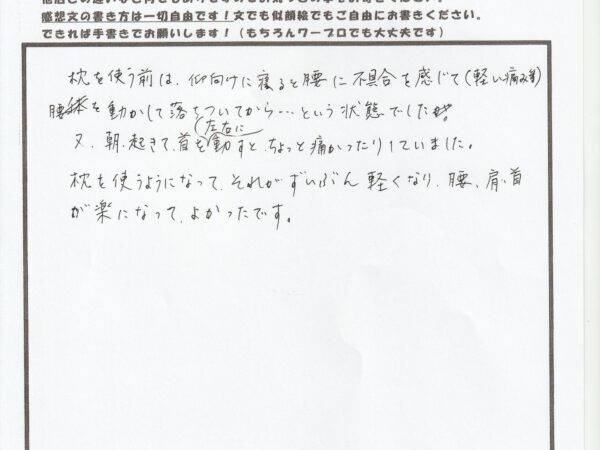 感想文の書き方は一切自由です！文でも似顔絵でもご自由にお書きください。
できれば手書きでお願いします！（もちろんワープロでも大丈夫です）
枕を使う前は、仰向けに寝ると腰に不具合を感じて(軽い痛み等)
腰を動かして落ちついてから…という状態でした。
(左右に
又、朝、起きて、首を動すと、ちょっと痛かったりしていました。
枕を使うようになって、それがずいぶん軽くなり、腰、肩、首
が楽になって、よかったです。